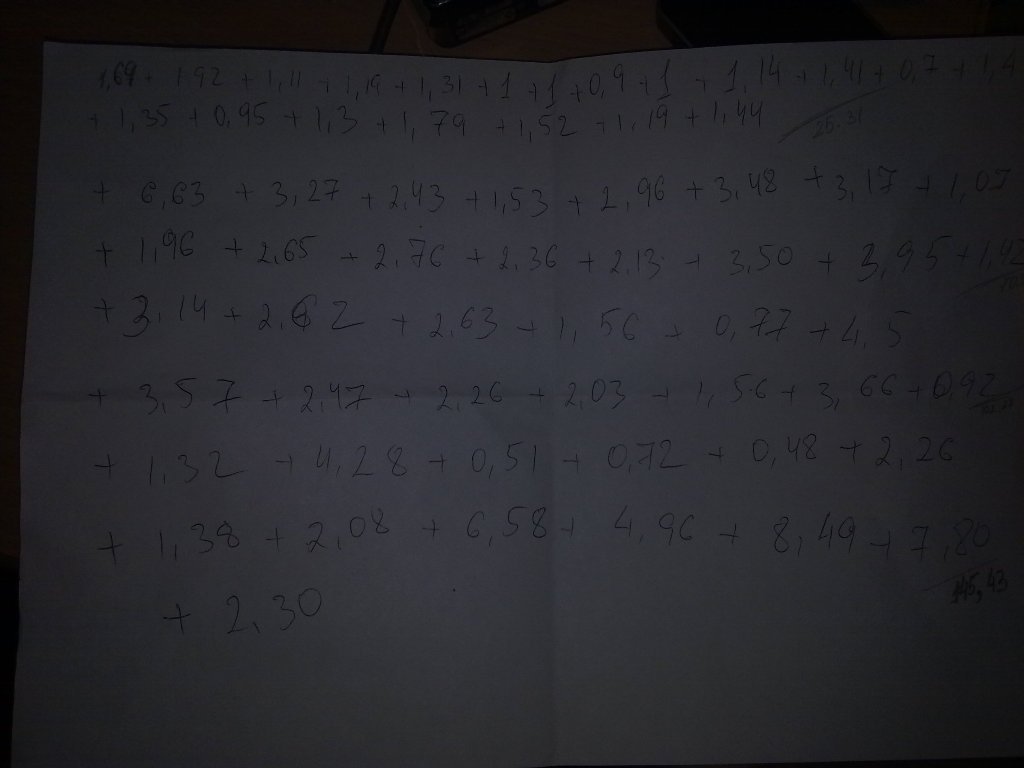 1,69 + 1,92 + 1,11 + 1,19 + 1,31 + 1 + 1 + 0,9 + 1 + 1,14 + 1,41 + 0,7 + 1,4
+ 1,35 + 0,95 + 1,3 + 1,79 + 1,52 + 1,19 + 1,44
25.31
+ 6,63 + 3,27 + 2,43 + 1,53 + 2,96 + 3,48 + 3,17 + 1,07
+ 1,96 + 2,65 + 2,76 + 2,36 + 2,13 + 3,50 + 3,95 + 1,42
+ 3,14 + 2,62 + 2,63 + 1,56 + 0,77 + 4,5
+ 3,57 + 2,47 + 2,26 + 2,03 + 1,56 + 3,66 + 0,92
+ 1,32 + 4,28 + 0,51 + 0,72 + 0,48 + 2,26
+ 1,38 + 2,08 + 6,58 + 4,96 + 8,49 + 7,80
145,43
+ 2,30